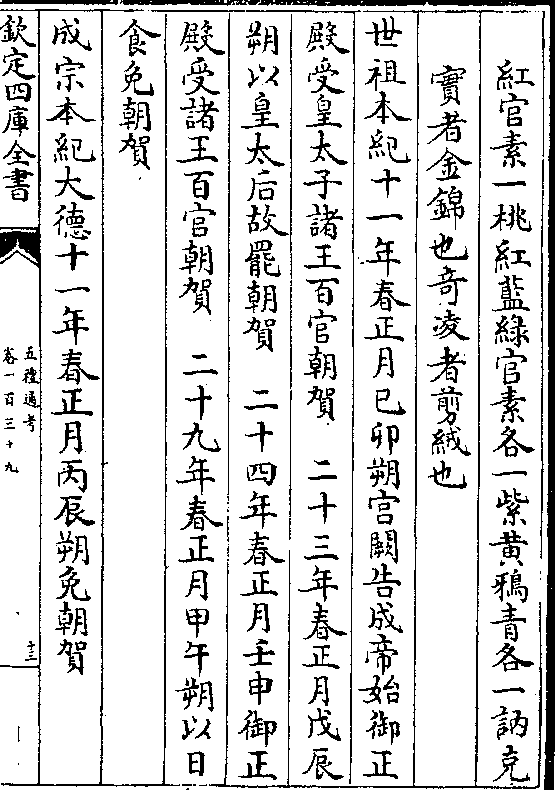 紅官素一桃紅藍綠官素各一紫黃鴉青各一訥克
實者金錦也竒凌者剪絨也
世祖本紀十一年春正月己卯朔宫闕告成帝始御正
殿受皇太子諸王百官朝賀　二十三年春正月戊辰
朔以皇太后故罷朝賀　二十四年春正月壬申御正
殿受諸王百官朝賀　二十九年春正月甲午朔以日
食免朝賀
成宗本紀大德十一年春正月丙辰朔免朝賀
欽定四庫全書
五禮通考
卷一百三十九
十三